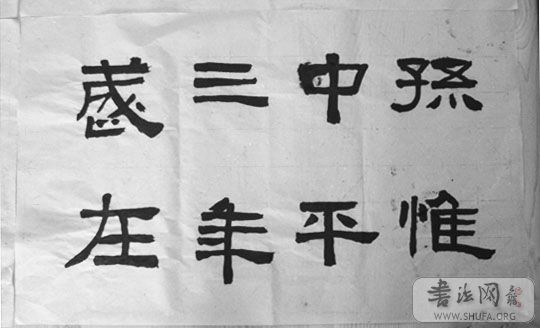 孫惟
中平
三年
歲在
書法网
WWW.SHUFA.ORG